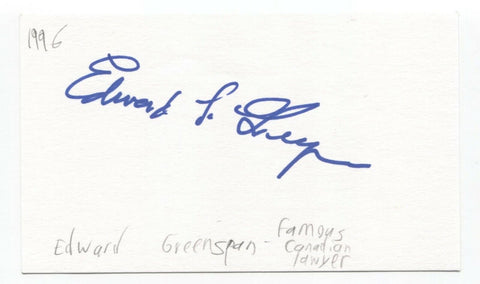 1996
Edward L. Greenspan
Edward Greenspan - Famous
Canadian
lawyer